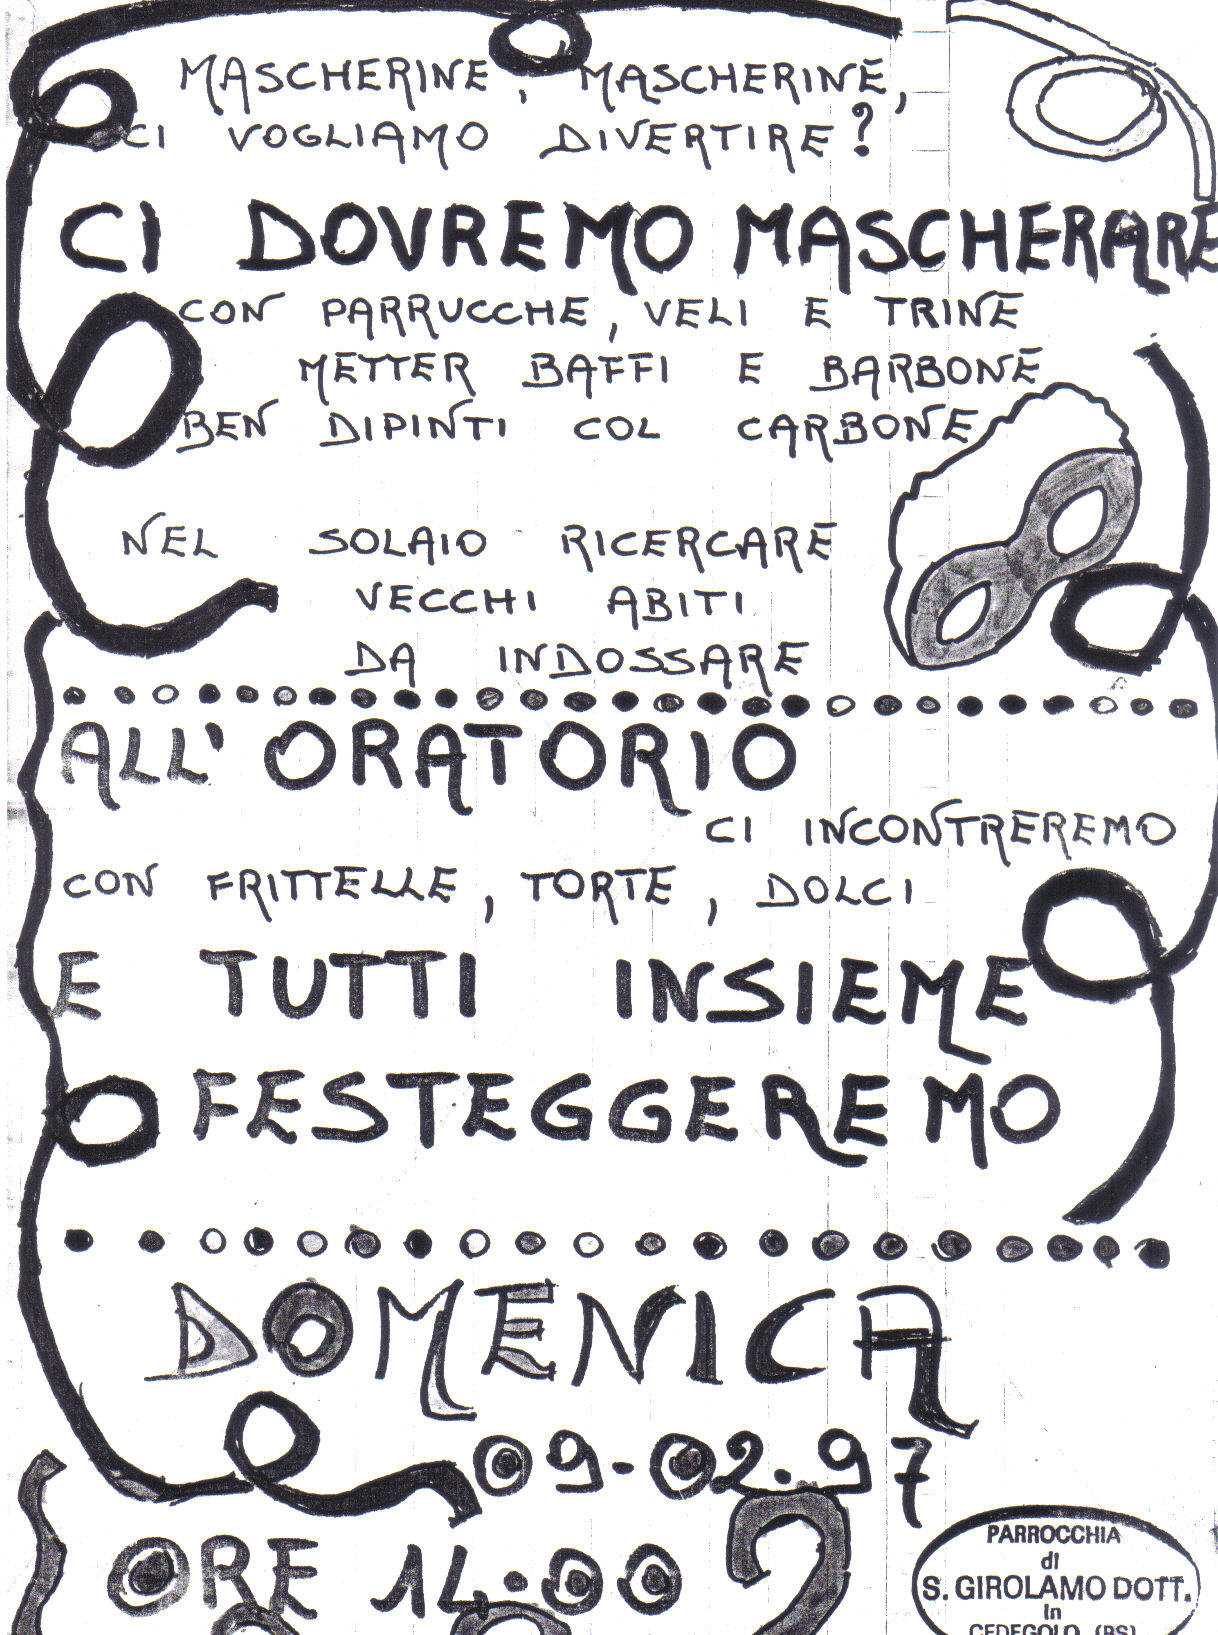 MASCHERINE, MASCHERINE,
CI VOGLIAMO DIVERTIRE?
CI DOVREMO MASCHERARE
CON PARRUCCHE, VELI E TRINE
METTER BAFFI E BARBONE
BEN DIPINTI COL CARBONE
NEL SOLAIO RICERCARE
VECCHI ABITI
DA INDOSSARE
ALL' ORATORIO
CI INCONTREREMO
CON FRITTELLE, TORTE, DOLCI
E TUTTI INSIEME
FESTEGGEREMO
DOMENICA
09-02.97
ORE 14.00
PARROCCHIA
di
S. GIROLAMO DOTT.
in
CEDEGOLO (BS)